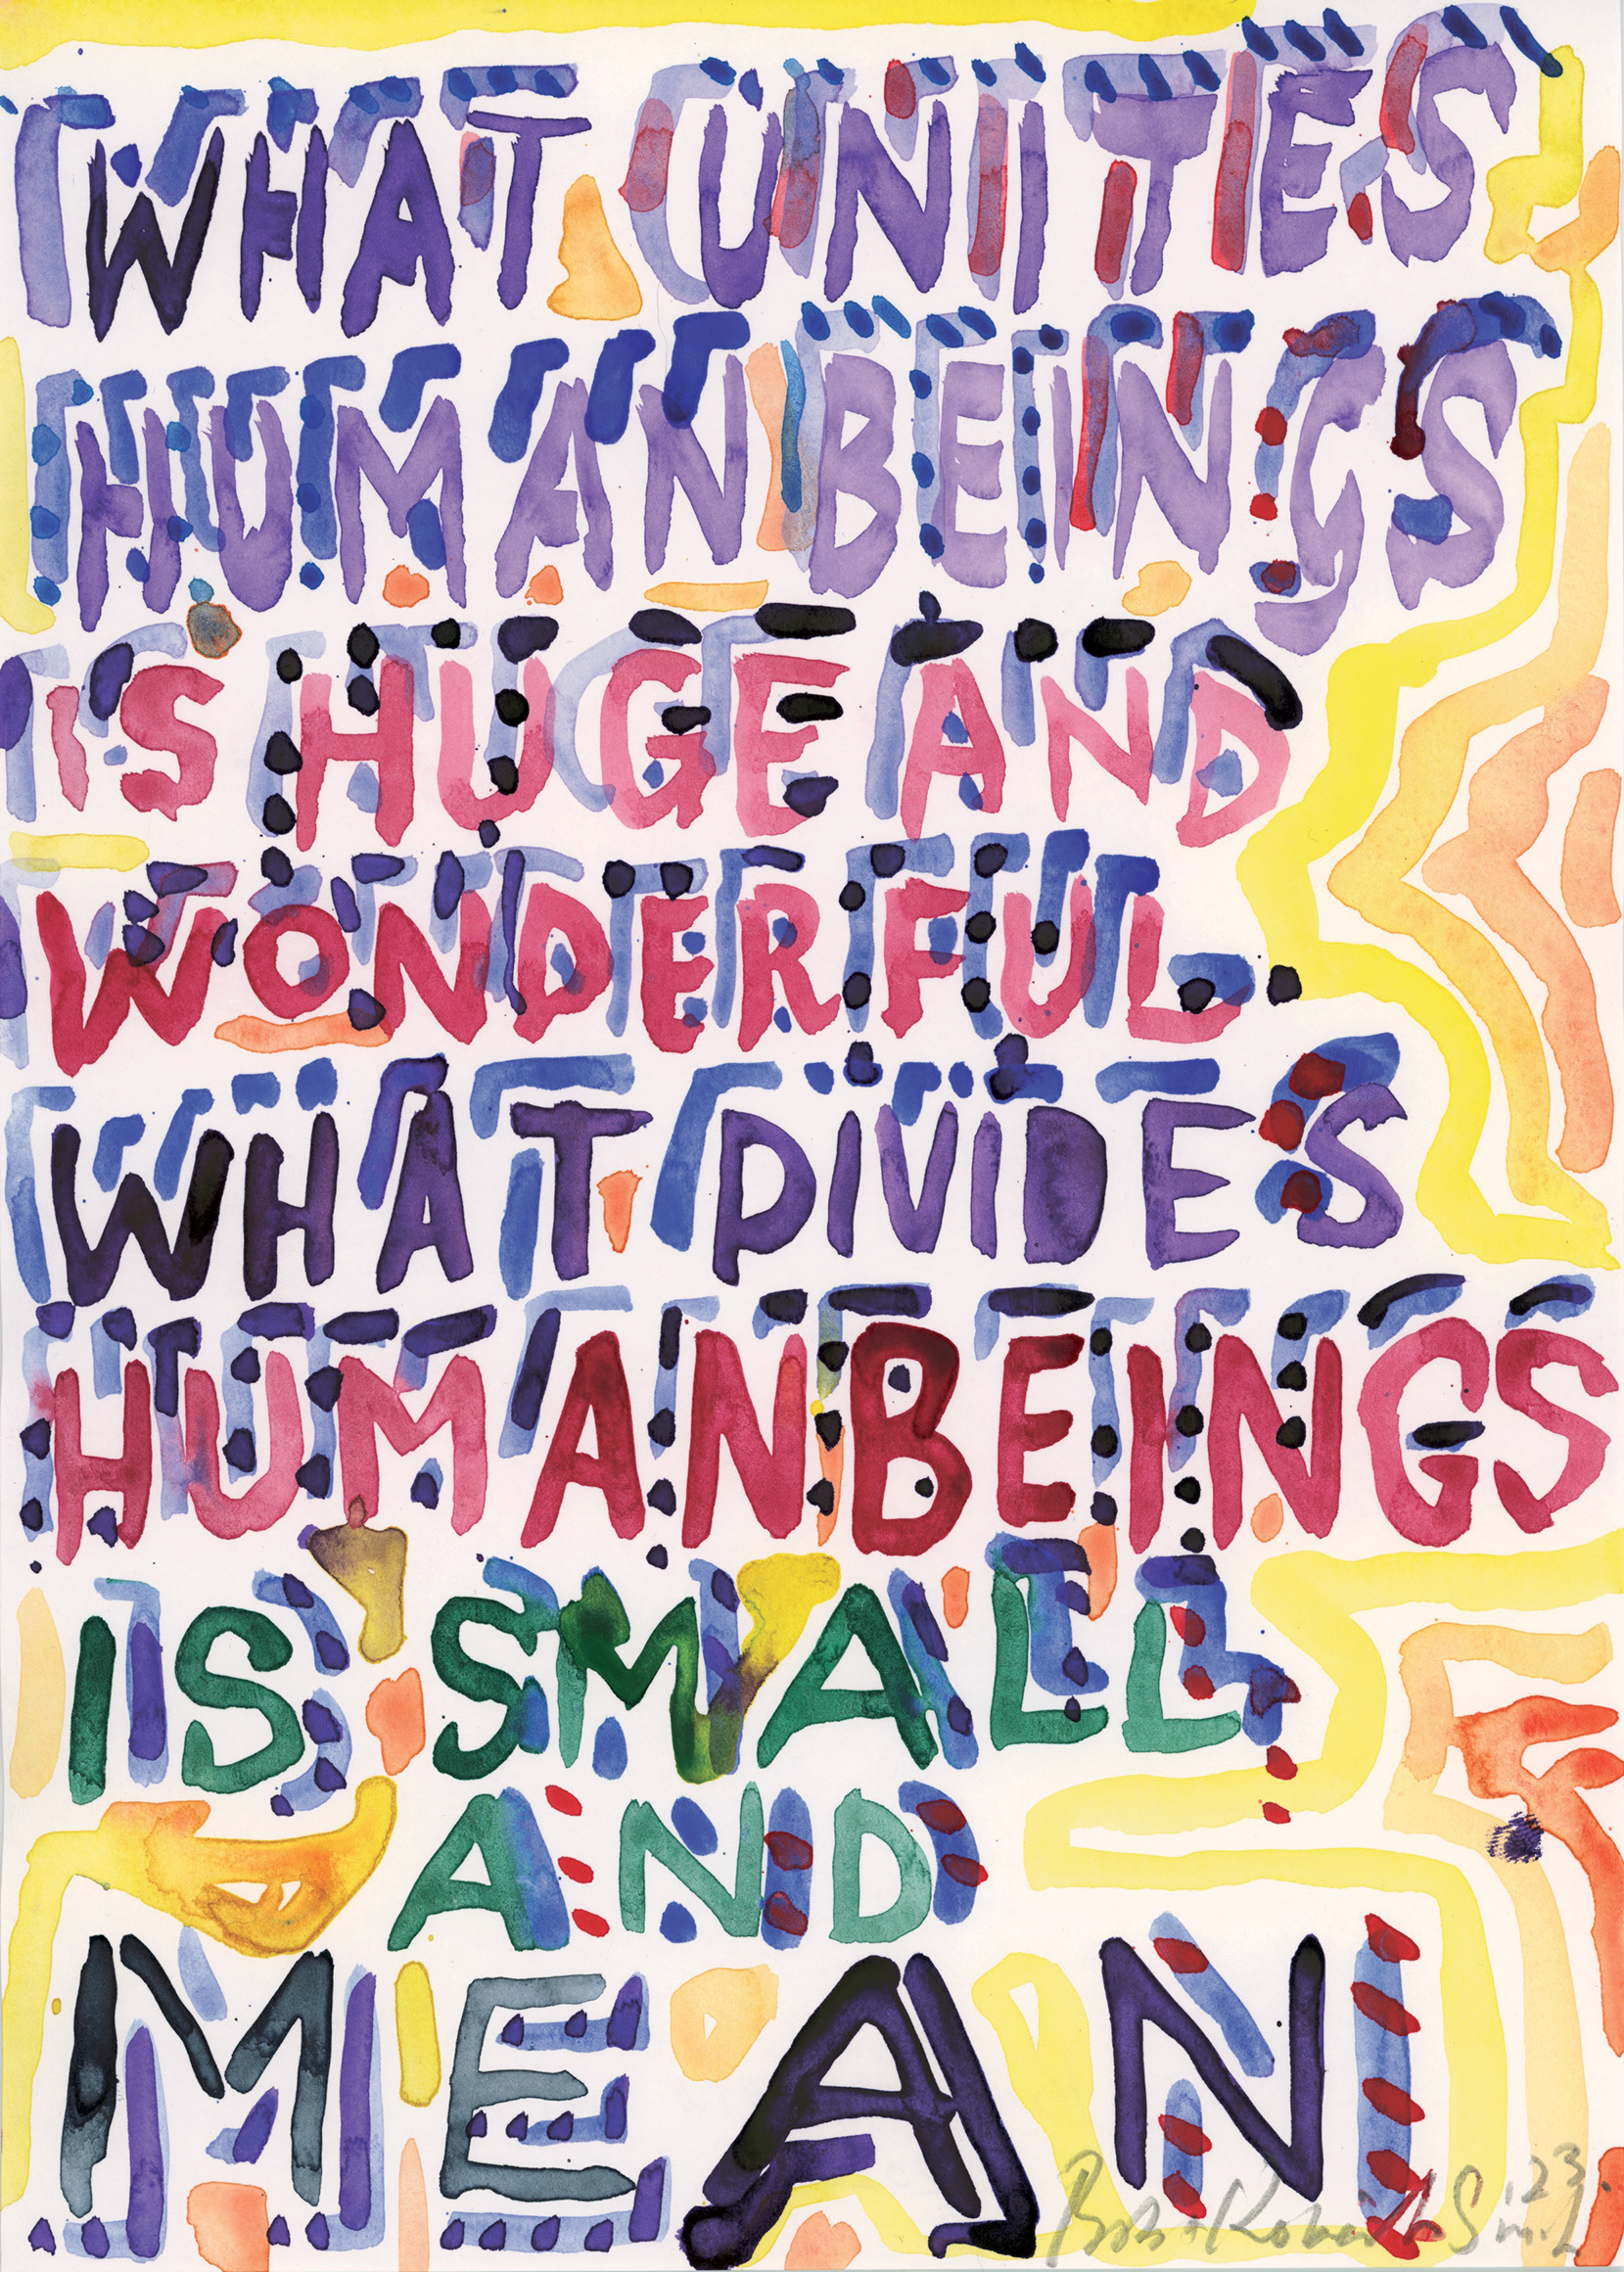 WHAT UNITIES
HUMAN BEINGS
IS HUGE AND
WONDERFUL.
WHAT DIVIDES
HUMAN BEINGS
IS SMALL
AND
MEAN
Bob & Roberta Smith
23